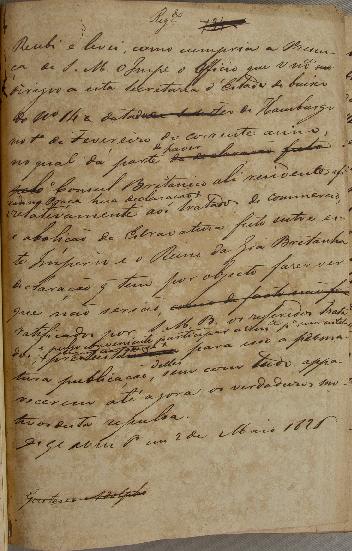 Recebi e levei, como cumpria a Presen-
ça de S. M. O Impe o Officio que V.
dirigio a esta Secretaria d'Estado de baixo
do Nº 142 de Hamburgo
no 1º de Fevereiro do corrente anno,
no qual dá parte de haver
o Consul Britanico ali residente
huma declaração
relativamente aos Tratados de commercio,
e abolição da Escravatura feito entre es-
te Imperio e o Reino da Grã Bretanha
declaração q tem por objecto fazer ver
que não serião,
ratificados por S. M. B. os referidos Trata-
dos, para isso a prema-
tura publicação delles, sem com tudo appa-
recerem até agora os verdadeiros mo-
tivos desta repulsa.
D. G. a V. em 2 de Maio 1826